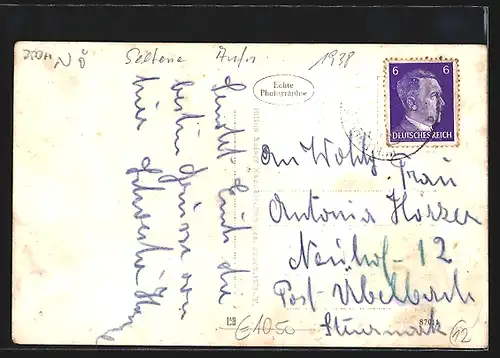 NÖ
Seltene Aufn.
1938
Echte
Photographie
6 6
DEUTSCHES REICH
sendet Euch die
besten Grüsse von
hier Schwester
An Wohlg. Frau
Antonia Hörzer
Neuhof - 12
Post - Übelbach
Steiermark
€10.50
12